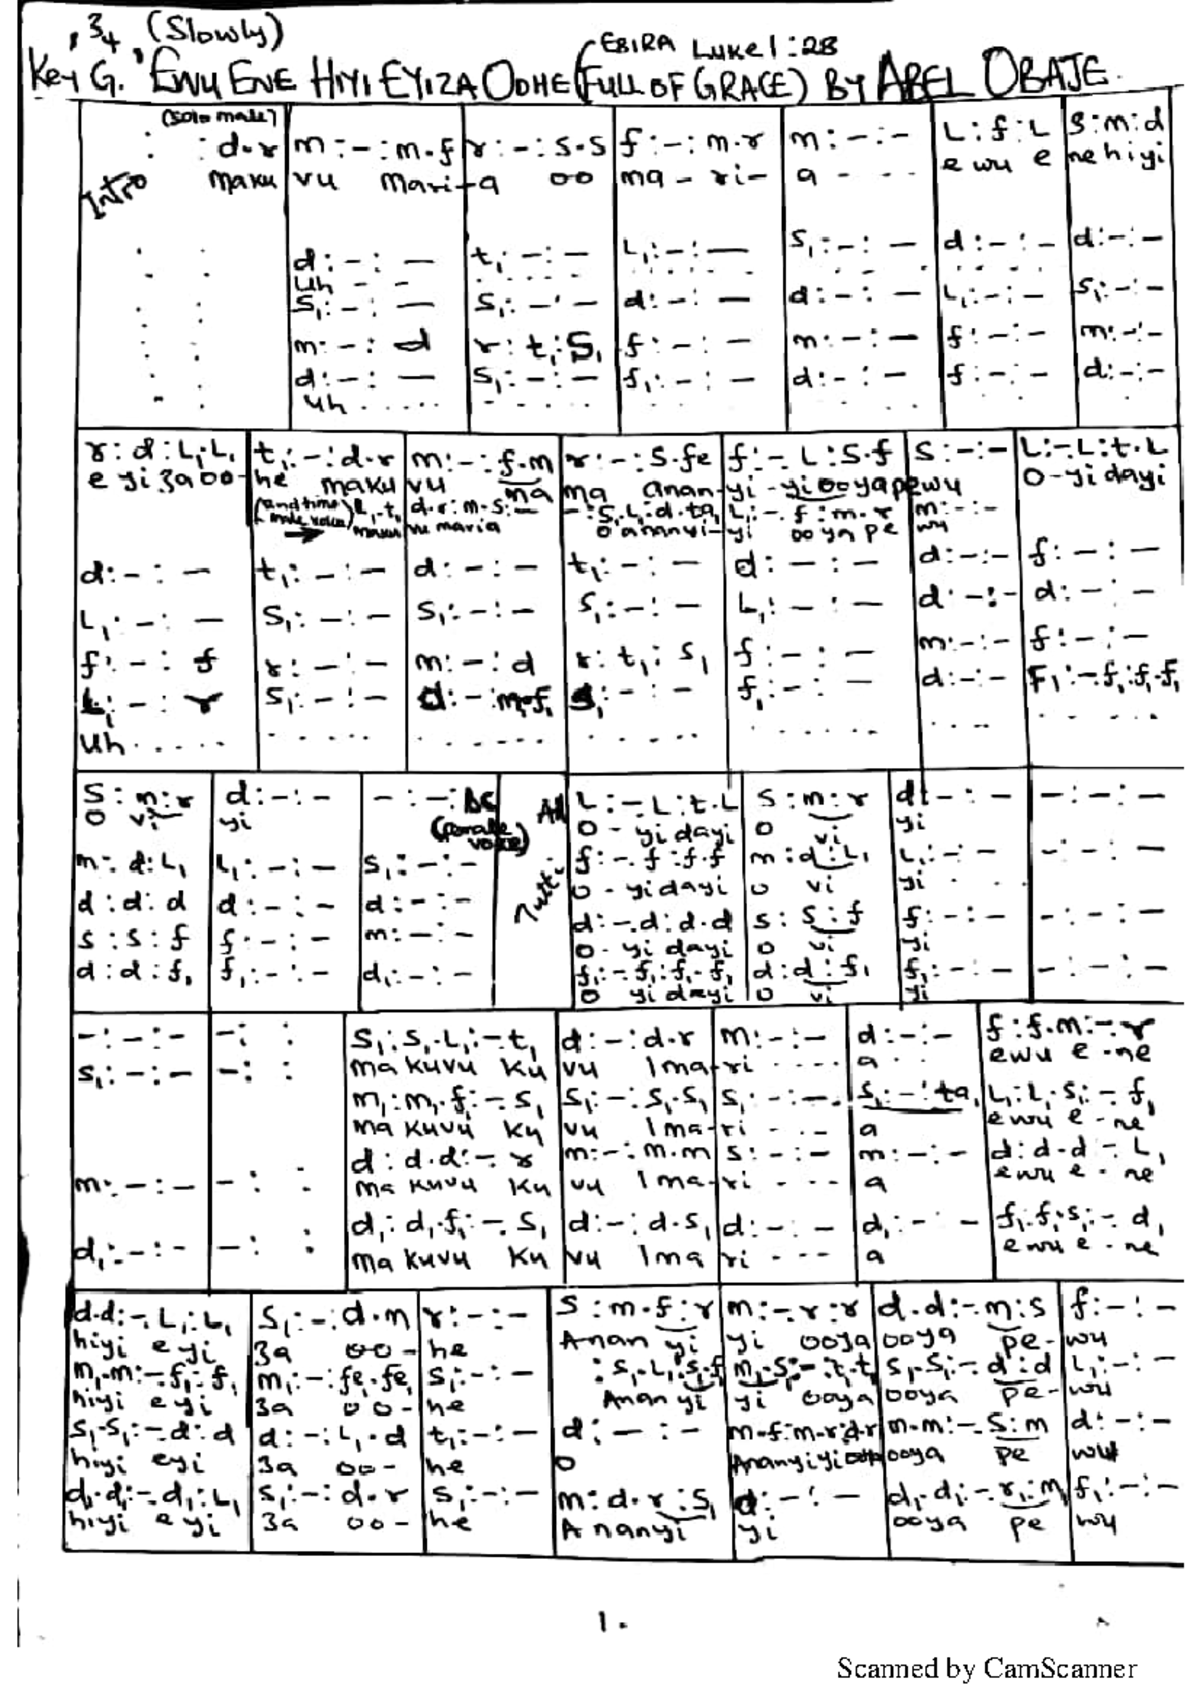 , 3/4 (Slowly)
(EBIRA Luke 1:28
Key G. 'EWU ENE HIYI EYIZA OOHE (FULL OF GRACE) BY ABEL OBAJE.
(Solo male)
Intro : : d.r | m:-:m.f | r:-:s.s | f:-:m.r | m:-:- | L:f:L | s:m:d
maku | vu mari- | a oo | ma-ri- | a - - - | e wu e | ne hiyi
: : | d:-:- | t₁:-:- | L₁:-:- | s₁:-:- | d:-:- | d:-:-
uh - -
: : | s₁:-:- | s₁:-:- | d:-:- | d:-:- | L₁:-:- | s₁:-:-
: : | m:-:d | r:t₁:s₁ | f:-:- | m:-:- | f:-:- | m:-:-
: : | d:-:- | s₁:-:- | f₁:-:- | d:-:- | f:-:- | d:-:-
uh . . . . .
r:d:L₁.L₁ | t₁:-:d.r | m:-:f.m | r:-:s.fe | f:-.L:s.f | s:-:- | L:-.L:t.L
e yi za oo- | he maku | vu ma | ma anan- | yi-yi ooya pe | wu | o-yi dayi
(2nd time male voice) L₁.t₁ | d.r:m.s:- | -:s₁.L₁:d.ta₁ | L₁:-.f:m.r | m:-:-
maku | vu maria | o ananyi- | yi ooya pe | wu
d:-:- | t₁:-:- | d:-:- | t₁:-:- | d:-:- | d:-:- | f:-:-
L₁:-:- | s₁:-:- | s₁:-:- | s₁:-:- | L₁:-:- | d:-:- | d:-:-
f:-:f | r:-:- | m:-:d | r:t₁:s₁ | f:-:- | m:-:- | f:-:-
L₁:-:r | s₁:-:- | d:-:m₁.f₁ | s₁:-:- | f₁:-:- | d:-:- | f₁:-.f₁:f₁.f₁
uh . . . . .
s:m:r | d:-:- | -:-: DC | All | L:-.L:t.L | s:m:r | d:-:- | -:-:-
o vi | yi | (female voice) | o-yi dayi | o vi | yi
m:d:L₁ | L₁:-:- | s₁:-:- | Tutti | f:-.f:f.f | m:d:L₁ | L₁:-:- | -:-:-
o-yi dayi | o vi | yi
d:d:d | d:-:- | d:-:- | d:-.d:d.d | s:s:f | f:-:- | -:-:-
s:s:f | f:-:- | m:-:- | o-yi dayi | o vi | yi
d:d:f₁ | f₁:-:- | d₁:-:- | f₁:-.f₁:f₁.f₁ | d:d:f₁ | f₁:-:- | -:-:-
o yi dayi | o vi | yi
-:-:- | -: : | s₁:s₁.L₁:-.t₁ | d:-:d.r | m:-:- | d:-:- | f:f.m:-.r
ma kuvu ku | vu 1ma- | ri - - - | a | ewu e-ne
s₁:-:- | -: : | m₁:m₁.f₁:-.s₁ | s₁:-:s₁.s₁ | s₁:-:- | s₁:-:ta₁ | L₁:L₁.s₁:-.f₁
ma kuvu ku | vu 1ma- | ri - - - | a | ewu e-ne
m:-:- | -: : | d:d.d:-.r | m:-:m.m | s:-:- | m:-:- | d:d.d-L₁
ma kuvu ku | vu 1ma- | ri - - - | a | ewu e-ne
d₁:-:- | -: : | d₁:d₁.f₁:-.s₁ | d:-:d.s₁ | d:-:- | d₁:-:- | f₁.f₁.s₁:-.d₁
ma kuvu ku | vu 1ma | ri - - - | a | ewu e-ne
d.d:-.L₁:L₁ | s₁:-:d.m | r:-:- | s:m.f:r | m:-.r:r | d.d:-.m:s | f:-:-
hiyi e yi | za oo- | he | Anan yi | yi ooya | ooya pe- | wu
m₁.m₁:-.f₁:f₁ | m₁:-:fe₁.fe₁ | s₁:-:- | :s₁.L₁:s₁.f₁ | m₁.s₁:-:t₁.t₁ | s₁.s₁:-.d:d | L₁:-:-
hiyi e yi | za oo- | he | Anan yi | yi ooya | ooya pe- | wu
s₁.s₁:-.d:d | d:-:L₁.d | t₁:-:- | d:-:- | m.f:m.r:d.r | m.m:-.s:m | d:-:-
hiyi eyi | za oo- | he | o | Ananyiyi ooya | ooya pe | wu
d₁.d₁:-.d₁:L₁ | s₁:-:d.r | s₁:-:- | m:d.r:s₁ | d:-:- | d₁.d₁:-.r₁:m₁ | f₁:-:-
hiyi e yi | za oo- | he | A nanyi | yi | ooya pe | wu
1.
Scanned by CamScanner